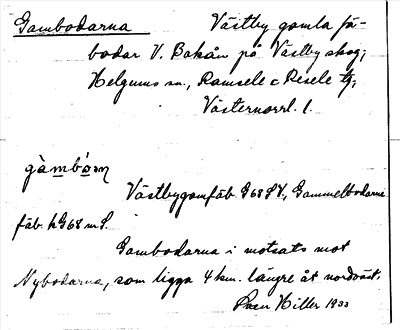 Gambodarna Västby gamla fä-
bodar V. Bakån på Västby skog;
Helgums sn., Ramsele o Resele tg,
Västernorrl. l.
gàmbó
Västbygamfäb G68SV, Gammelbodarna
fäb. hG68mS.
Gambodarna i motsats mot
Nybodarna, som ligga 4 km. längre åt nordväst.
Hiller 1933